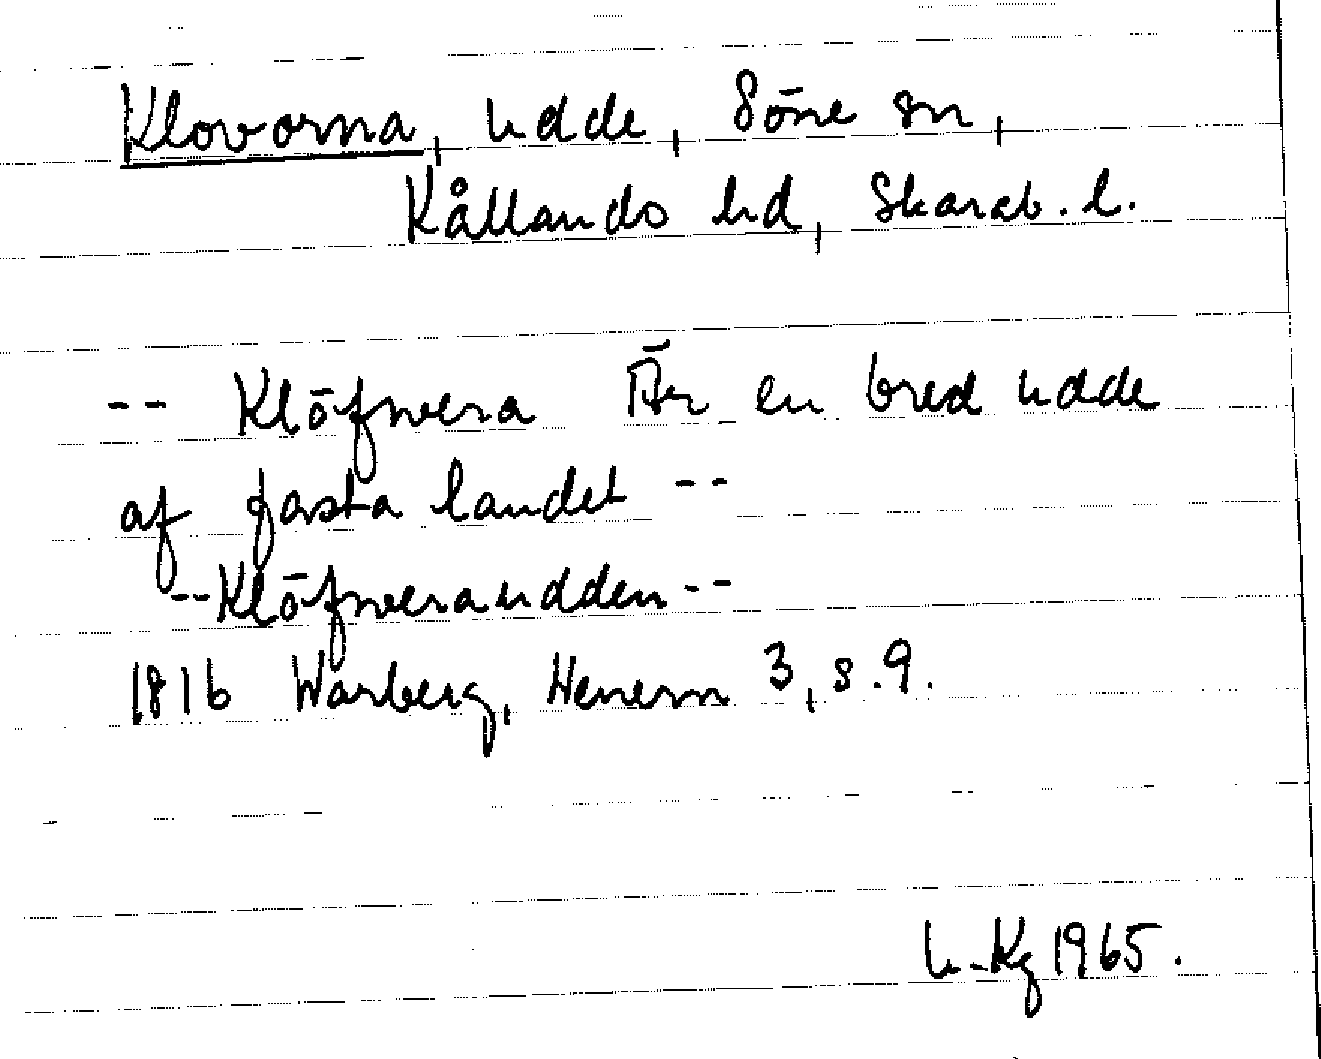 Klovorna, udde, Söne sn,
Kållands hd, Skarab. l.
-- Klöfwera Är en bred udde
af fasta landet --
--Klöfwera udden--
1816 Warberg, Wenern 3, s. 9.
1965.